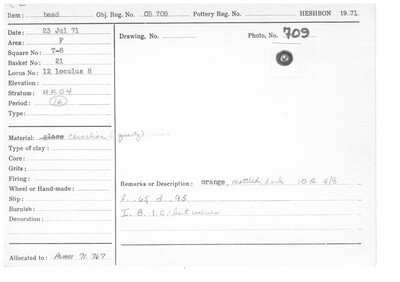 Item: bead Obj. Reg. No. OB 709 Pottery Reg. No. HESHBON 1971
Date: 23 Jul 71
Area: F
Square No: T-6
Basket No: 21
Locus No: 12 loculus 8
Elevation:
Stratum: HR04
Period:
Type:
Material: glass carnelian (quartz)
Type of clay:
Core:
Grits:
Firing:
Wheel or Hand-made:
Slip:
Burnish:
Decoration:
Allocated to: AUAM 71.767
Drawing, No.
Photo, No. 709
Remarks or Description: orange, mottled, dark 10R 4/8
d. .95
I. B. 1. C.